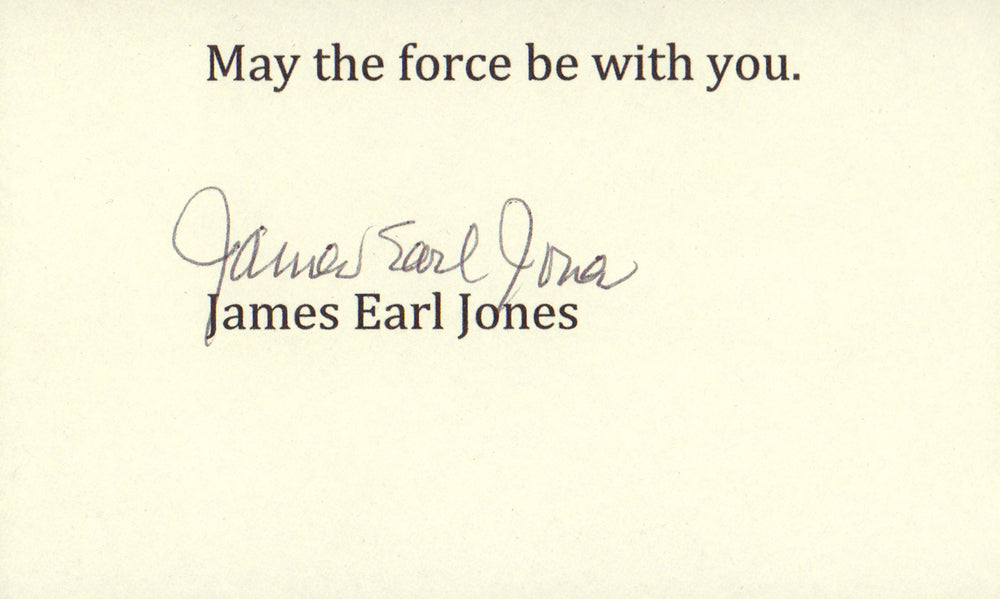 May the force be with you.
James Earl Jones
James Earl Jones